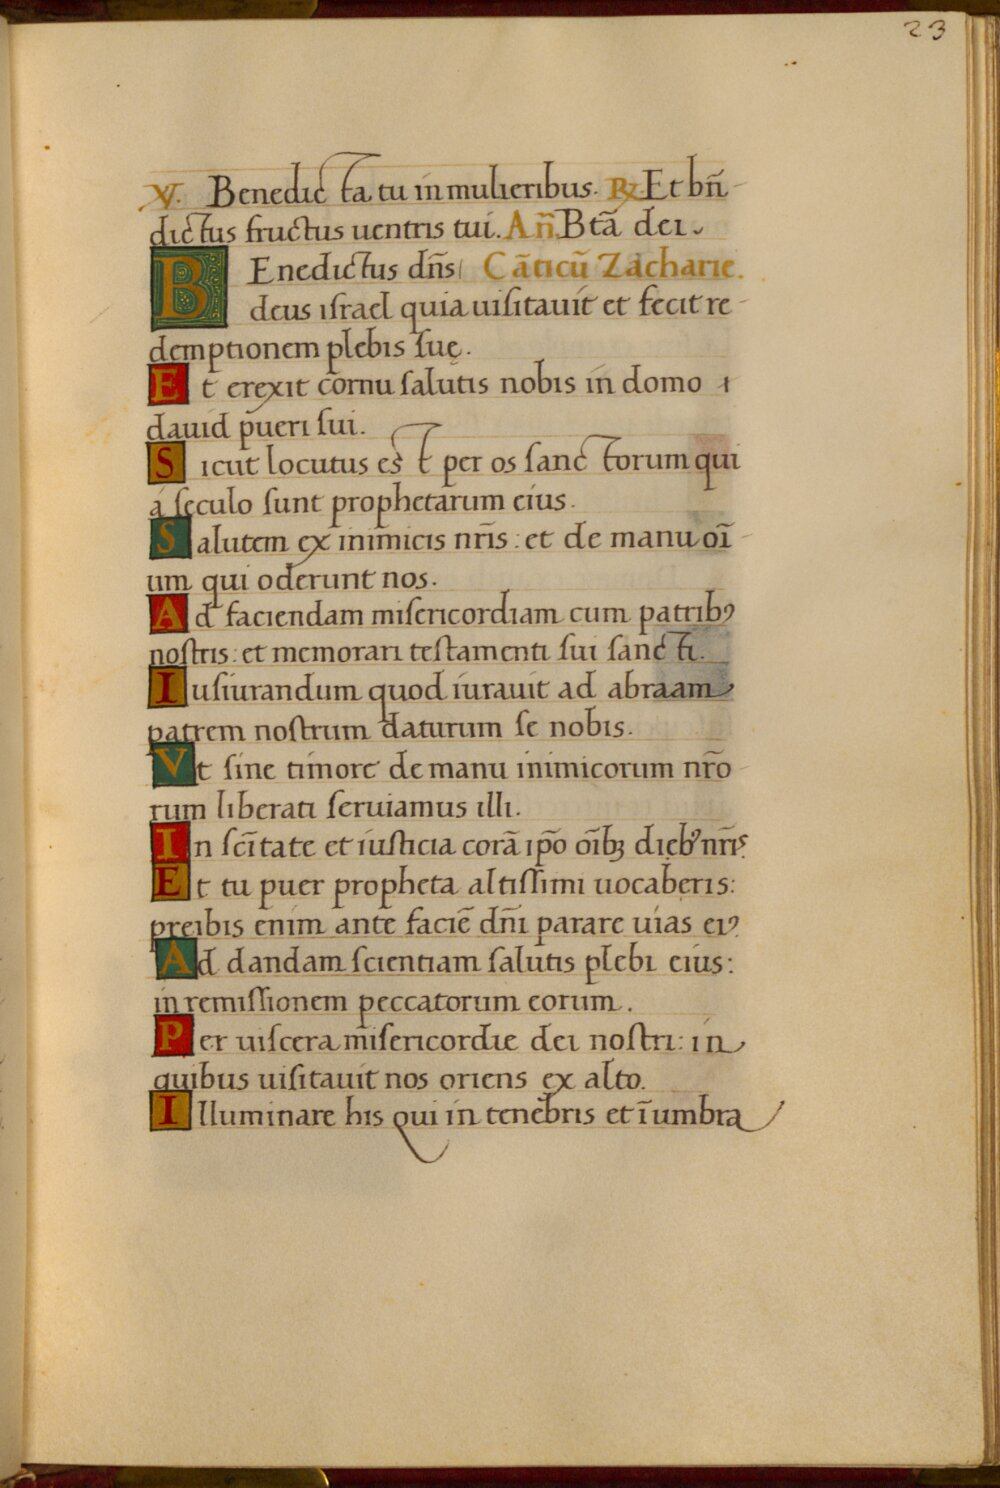 23
℣. Benedicta tu in mulieribus. ℟. Et bn̄
dictus fructus uentris tui. An̄. Btā dei
BEnedictus dn̄s Cāticū Zacharie.
deus israel quia uisitauit et fecit re-
demptionem plebis suę.
Et erexit cornu salutis nobis in domo
dauid pueri sui.
Sicut locutus est per os sanctorum qui
á sęculo sunt prophetarum eius.
Salutem ex inimicis nr̄is: et de manu oī-
um qui oderunt nos.
Ad faciendam misericordiam cum patribꝰ
nostris: et memorari testamenti sui sancti.
Iusiurandum quod iurauit ad abraam
patrem nostrum daturum se nobis.
Vt sine timore de manu inimicorum nr̄o-
rum liberati seruiamus illi.
In sc̄itate et iusticia corā ip̄o oībꝫ diebꝰ nr̄is
Et tu puer propheta altissimi uocaberis:
preibis enim ante faciē dn̄i parare uias eiꝰ.
Ad dandam scientiam salutis plebi eius:
in remissionem peccatorum eorum.
Per uiscera misericordie dei nostri: in
quibus uisitauit nos oriens ex alto.
Illuminare his qui in tenebris et ī umbra